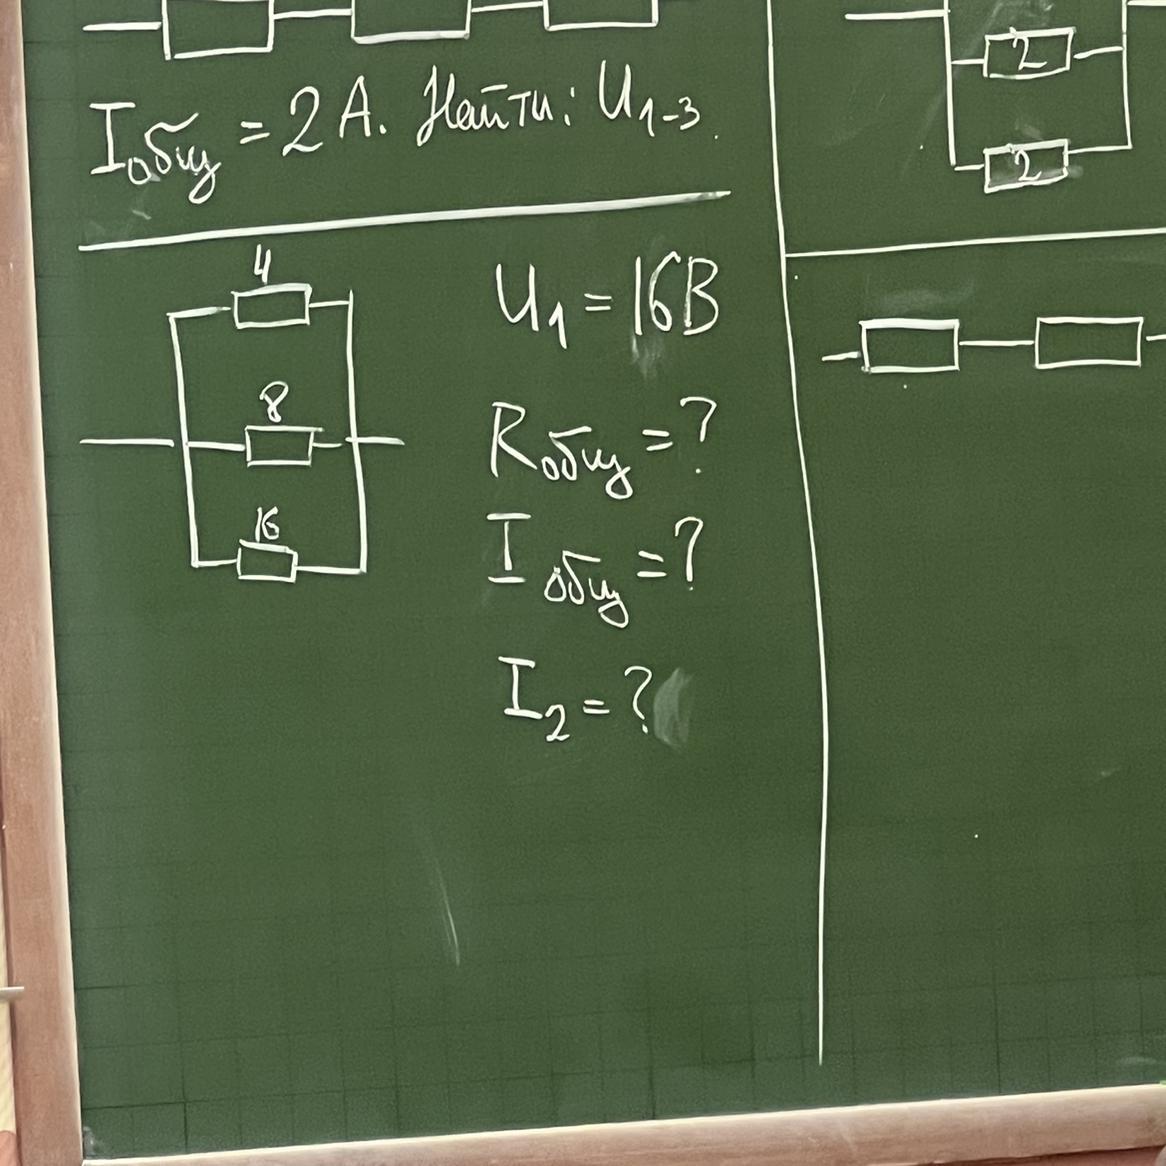 Iобщ = 2 А. Найти: U1-3.
2
2
4
8
16
U1 = 16В
Rобщ = ?
I общ = ?
I2 = ?